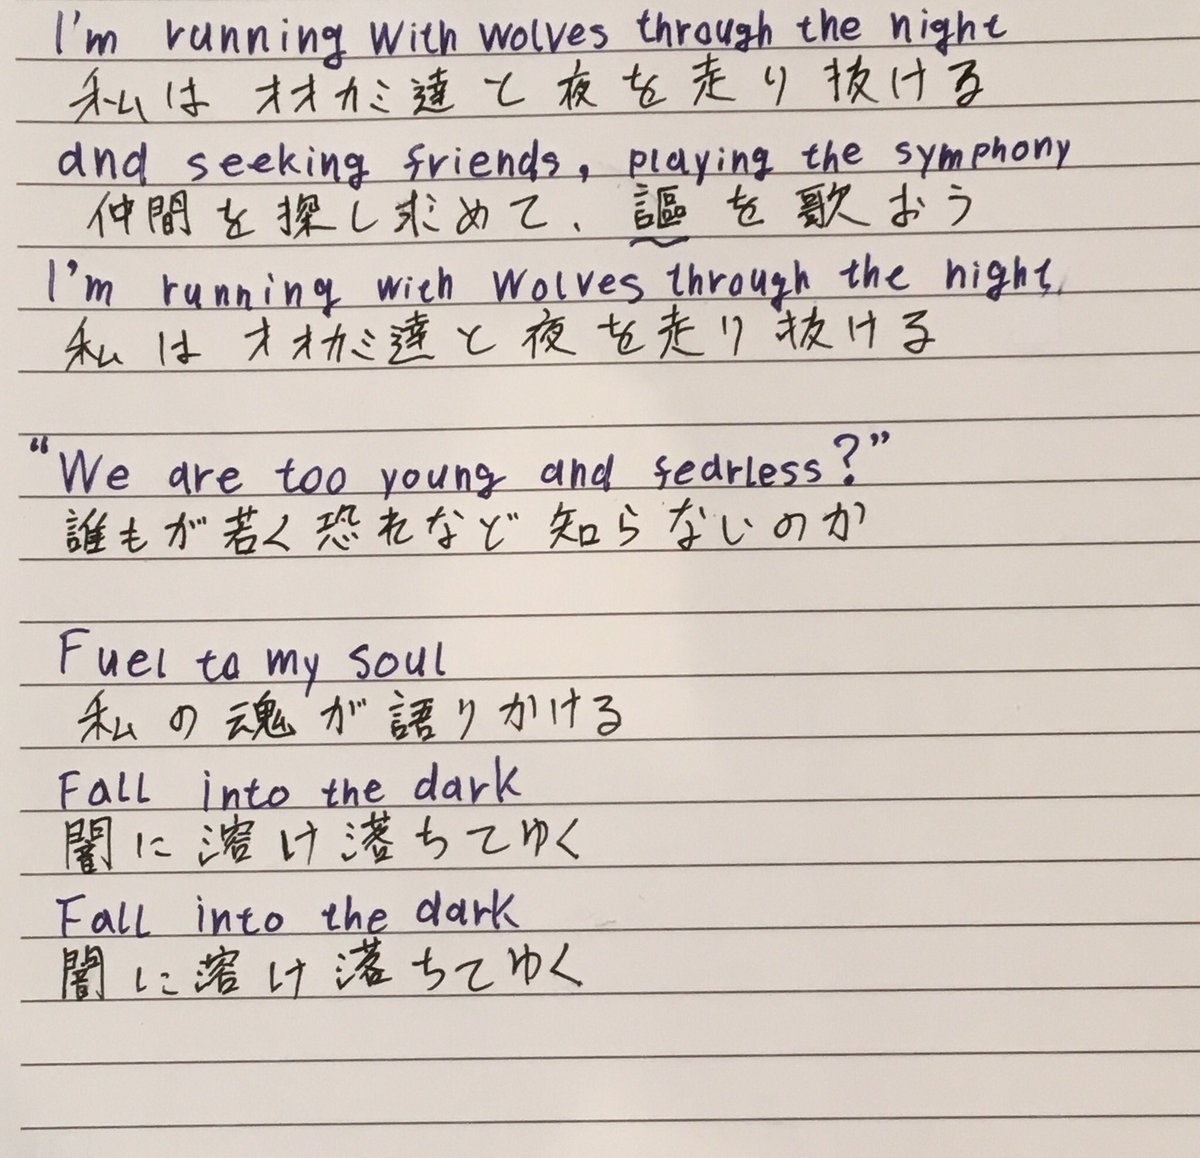 I'm running with wolves through the night
私は オオカミ達と夜を走り抜ける
and seeking friends, playing the symphony
仲間を探し求めて、謳を歌おう
I'm running with wolves through the night
私は オオカミ達と夜を走り抜ける
"We are too young and fearless?"
誰もが若く恐れなど知らないのか
Fuel to my soul
私の魂が語りかける
Fall into the dark
闇に溶け落ちてゆく
Fall into the dark
闇に溶け落ちてゆく